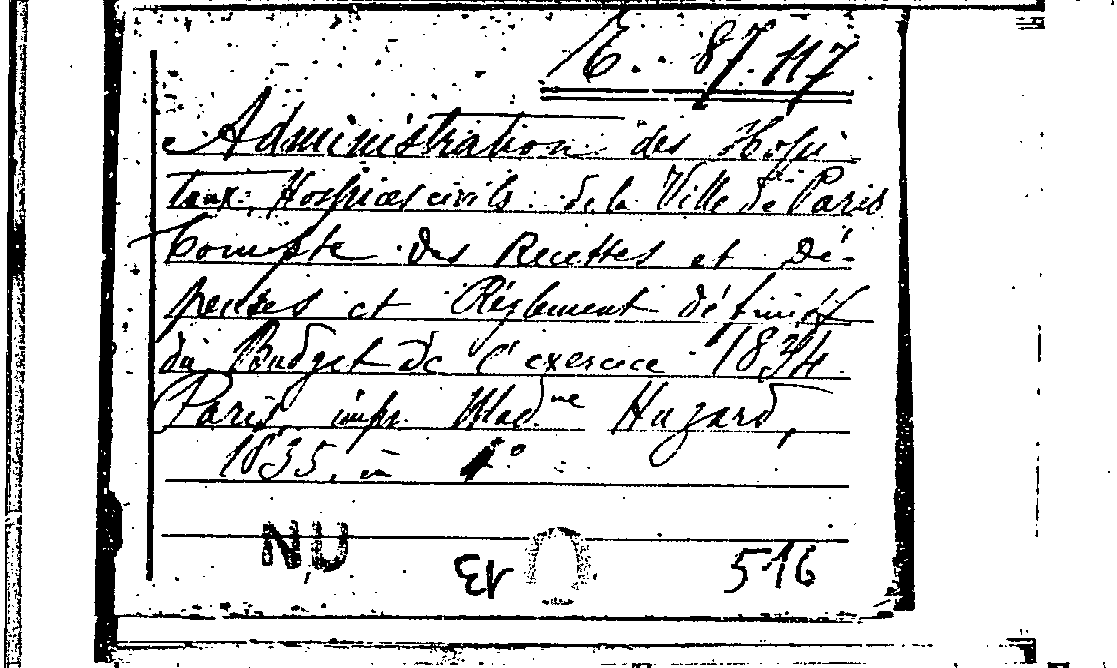 E. 87.117
Administration des Hospi
taux. Hospices civils de la Ville de Paris
Compte des Recettes et Dé-
penses et Réglement définitif
du Budget de l'exercice 1834.
Paris, impr. Mad^me Huzard,
1835, in 4°
NU
516